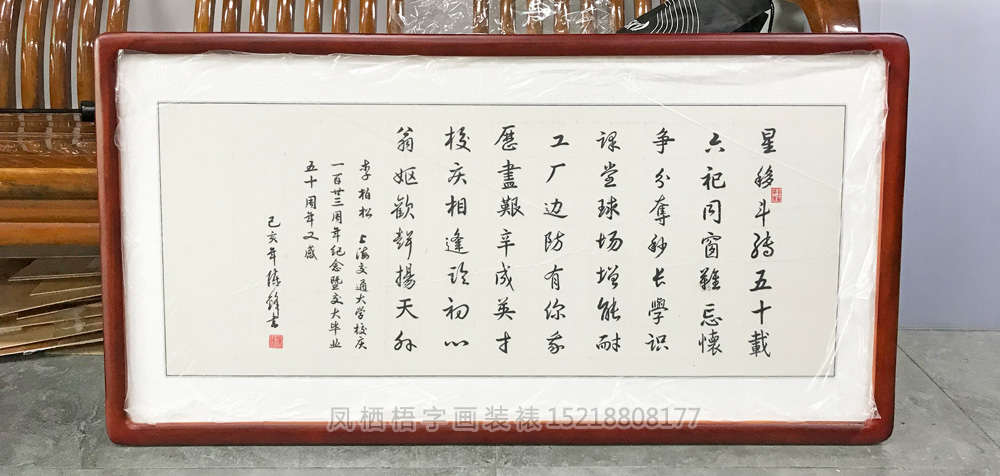 星移斗转五十載
六祀同窗難忘懷
争分奪秒长學识
课堂球场增能耐
工厂边防有你我
歷盡艱辛成英才
校庆相逢论初心
翁妪歡聲揚天外
李柏松 上海交通大学校庆
一百廿三周年纪念暨交大毕业
五十周年又感
己亥年 書
凤栖梧字画装裱15218808177